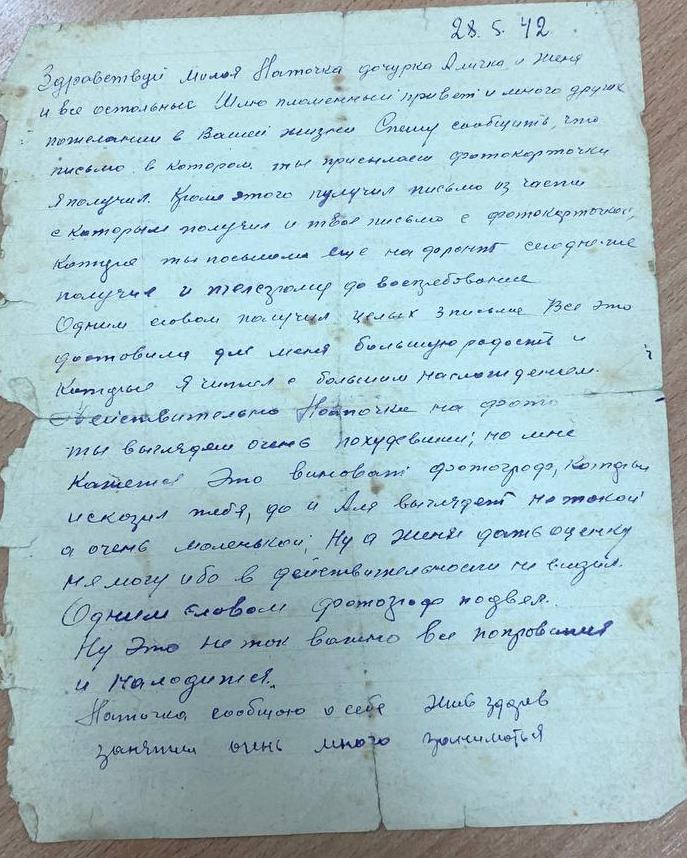 28. 5. 42
Здравствуй милоя Наточка дочурка Аличка и Женя
и все остальные Шлю пламенный привет и много других
пожелании в Вашей жизни Спешу сообщить, что
письмо в котором ты присылаеш фотокарточки
я получил. Кроме этого получил письмо из части
с которым получил и твое письмо с фотокарточкой,
которые ты посылала еще на сегодне
получил и телеграму до востребование
Одним словом получил целых 3 письма Все это
доставила для меня большую радость и
которые я читал с большим наслождением.
Действительно Наточка на фото
ты выглядеш очень похудевший; но мне
кажется это виноват фотограф, который
исказил тебя, да и Аля выглядет не такой
а очень маленькой; Ну а Жене дать оценку
не могу ибо в действительности не видил.
Одним словом фотограф подвял.
Ну это не так важно все поправится
и наладится.
Наточка сообщаю о себе Жив здоров
занятии очень много заниматься